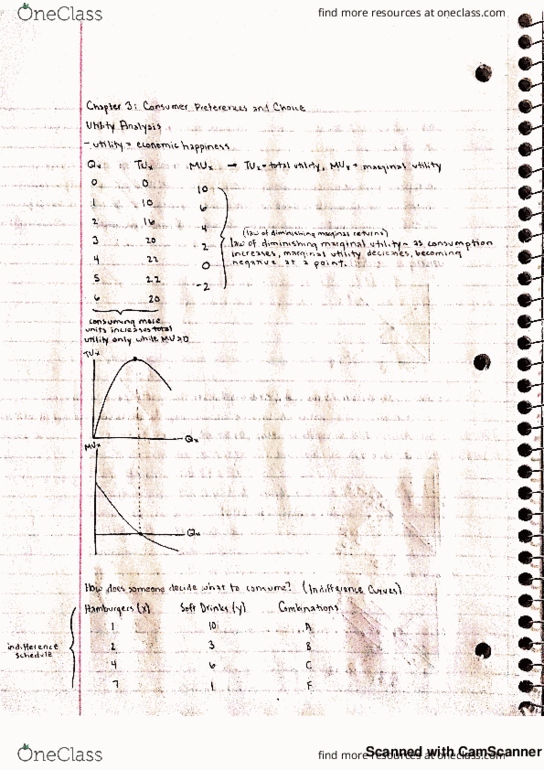 OneClass
find more resources at oneclass.com
Chapter 3: Consumer Preferences and Choice
Utility Analysis
- utility = economic happiness
Qx TUx MUx → TUx = total utility, MUx = marginal utility
0 0
10
1 10
6
2 16
4
(law of diminishing marginal returns)
3 20
2
law of diminishing marginal utility = as consumption
increases, marginal utility declines, becoming
negative at a point.
4 22
0
5 22
-2
6 20
consuming more
units increases total
utility only while MU>0
TUx
Qx
MUx
Qx
How does someone decide what to consume? (Indifference Curves)
Hamburgers (x) Soft Drinks (y) Combinations
1 10 A
indifference
schedule
2 3 B
4 6 C
7 1 F
OneClass
find more resources at oneclass.com
Scanned with CamScanner